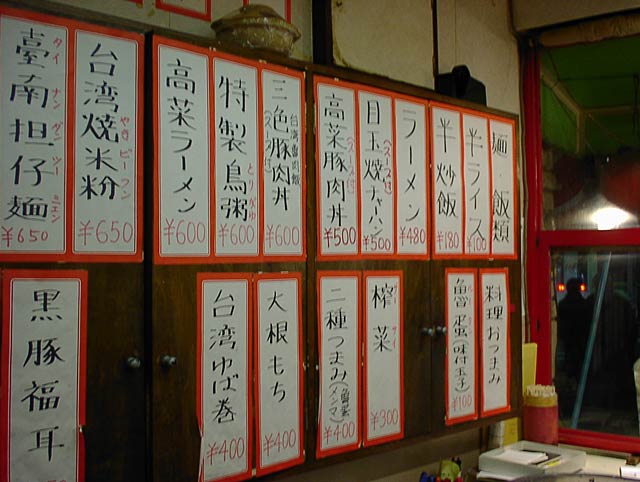 麺・飯類
半ライス
¥100
半炒飯
¥180
ラーメン
¥480
目玉焼チャーハン
(スープ付)
¥500
高菜豚肉丼
(スープ付)
¥500
三色豚肉丼
(スープ付)
¥600
特製鳥粥
とりがゆ
¥600
高菜ラーメン
¥600
台湾焼米粉
やきビーフン
¥650
臺南担仔麺
タイナンダンツーミェン
¥650
料理おつまみ
魯蛋(味付玉子)
¥100
搾菜
¥300
二種つまみ(魯蛋メンマ)
¥400
大根もち
¥400
台湾ゆば巻
¥400
黒豚福耳